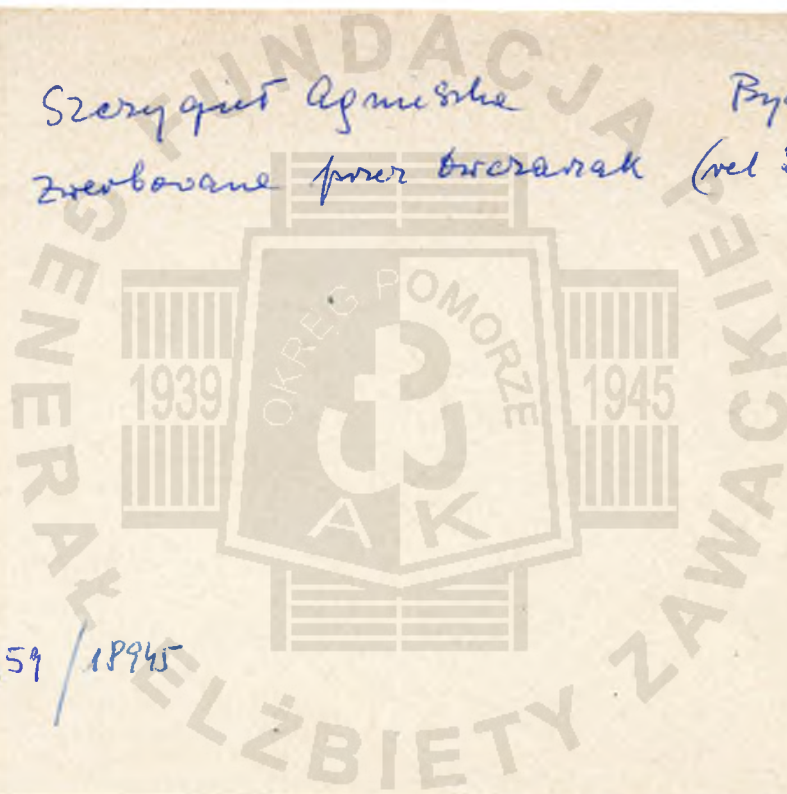 Szczygieł Agnieszka By
zwerbowana przez Owczarzak (vel
59/18945
FUNDACJA
GENERAŁ ELŻBIETY ZAWACKIEJ
OKRĘG POMORZE
1939
1945
AK